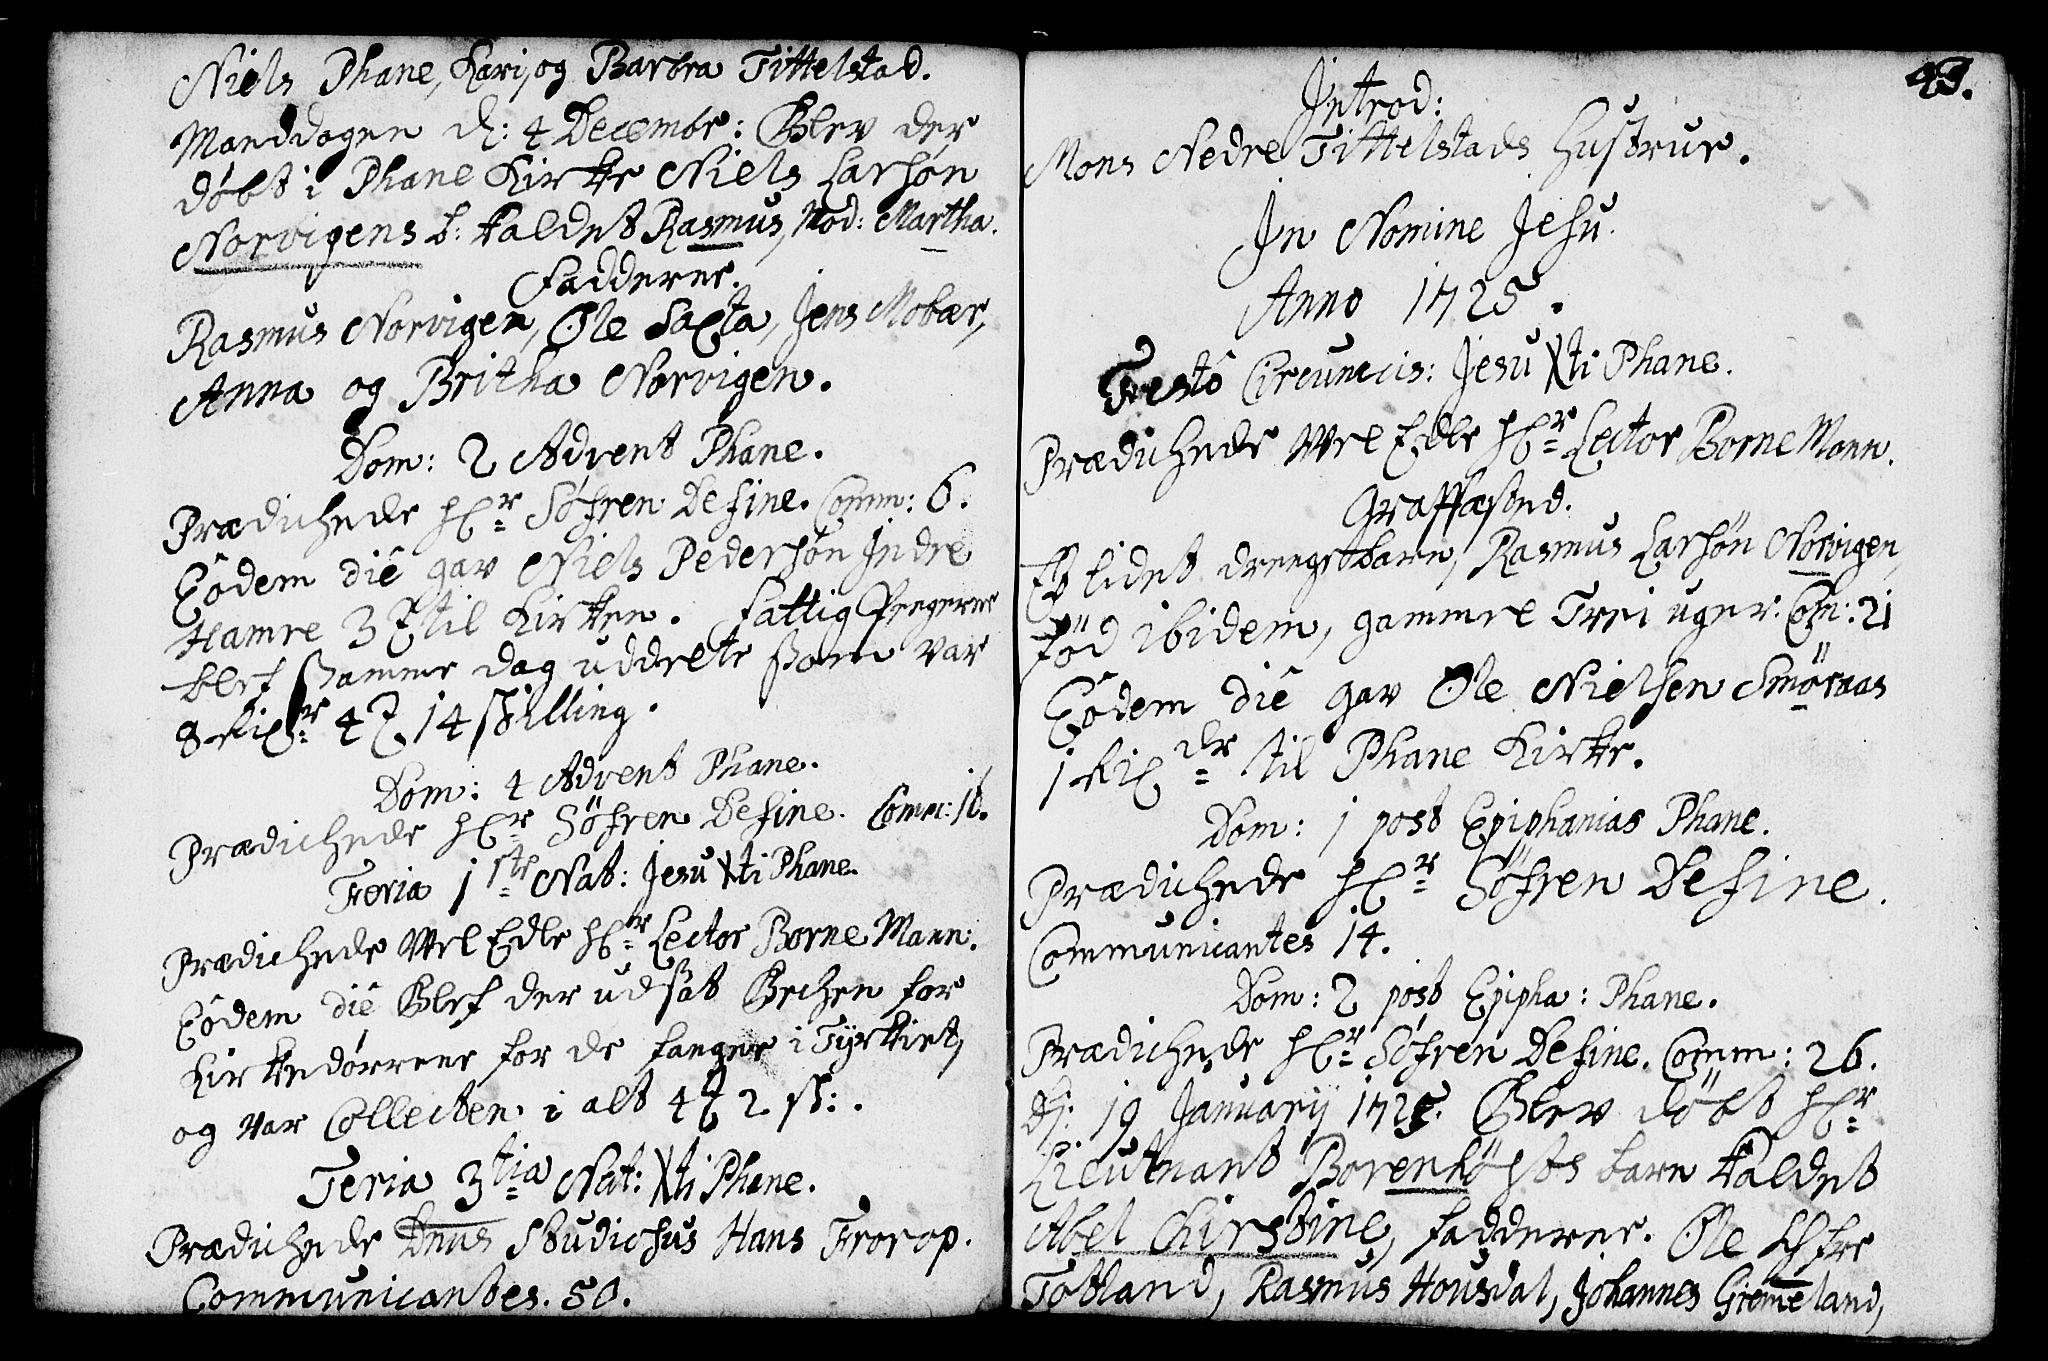 Niels Phane, Kari, og Barbra Tittelstad.
Manddagen d: 4 Decembr: Blev der
döbt i Phane Kirke Niels Larsøn
Norvigens b: kaldet Rasmus, Mod: Martha.
Faddere.
Rasmus Norvigen, Ole Saxta, Jens Mobær,
Anna og Britha Norvigen.
Dom: 2 Advent Phane.
Prædichede Hr Söfren Desine. Comm: 6.
Eôdem diê gav Niels Pedersøn Indre
Hamre 3 til Kirken. Fattig Pengene
blef samme dag uddelte som var
8 Rixdr 4 14 skilling.
Dom: 4 Advent Phane.
Prædichede Hr Söfren Desine. Comm:
Feria 1ste Nat: Jesu Xti Phane.
Prædichede Wel Edle Hr Lector BorneMann.
Eôdem diê Blef der udsat Bechen for
Kirkedørrene for de fanger i Tyrkiet,
og var Collecten i alt 4 2 sk:.
Feria 3tia Nat: Xti Phane.
Prædichede Dnus Studiosus Hans Frorop.
Communicantes. 50.
43.
Introd:
Mons Nedre Tittelstads Hustrue.
In Nomine Jesu.
Anno 1725.
Festô Circumcis: Jesu Xti Phane.
Prædichede Wel Edle Hr Lector BorneMann.
Graffæstnd.
Et lidet drengebarn, Rasmus Larsøn Norvigen,
föd ibidem, gammel Trei uger. Com: 21
Eôdem diê gav Ole Nielsen Smöraas
1 Rixdr til Phane Kirke.
Dom: 1 post Epiphanias Phane.
Prædichede Hr Söfren Desine.
Communicantes 14.
Dom: 2 post Epipha: Phane.
Prædichede Hr Söfren Desine. Comm: 26.
d: 19 Januarij 1725. Blev döbt Hr
Lieutnant Borenhöfts barn kaldet
Abel Chirstine, Faddere. Ole
Totland, Rasmus Housdal, Johannes Grimeland,